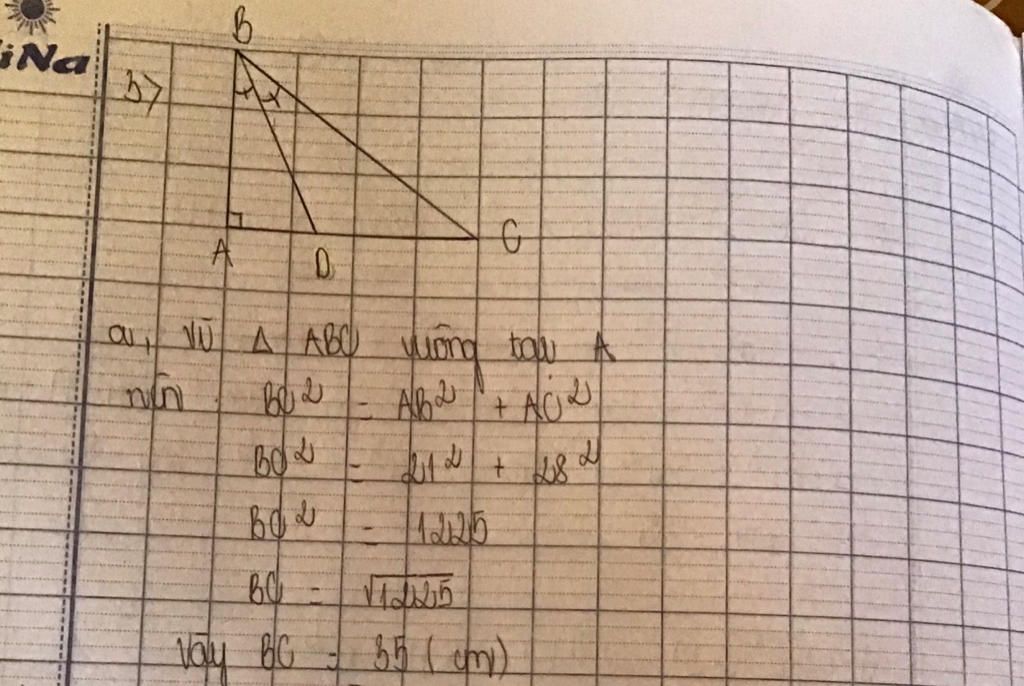 iNa
B
3>
A D C
a, Vì Δ ABC vuông tại A
nên BC² = AB² + AC²
BC² = 21² + 28²
BC² = 1225
BC = √1225
Vậy BC = 35 (cm)